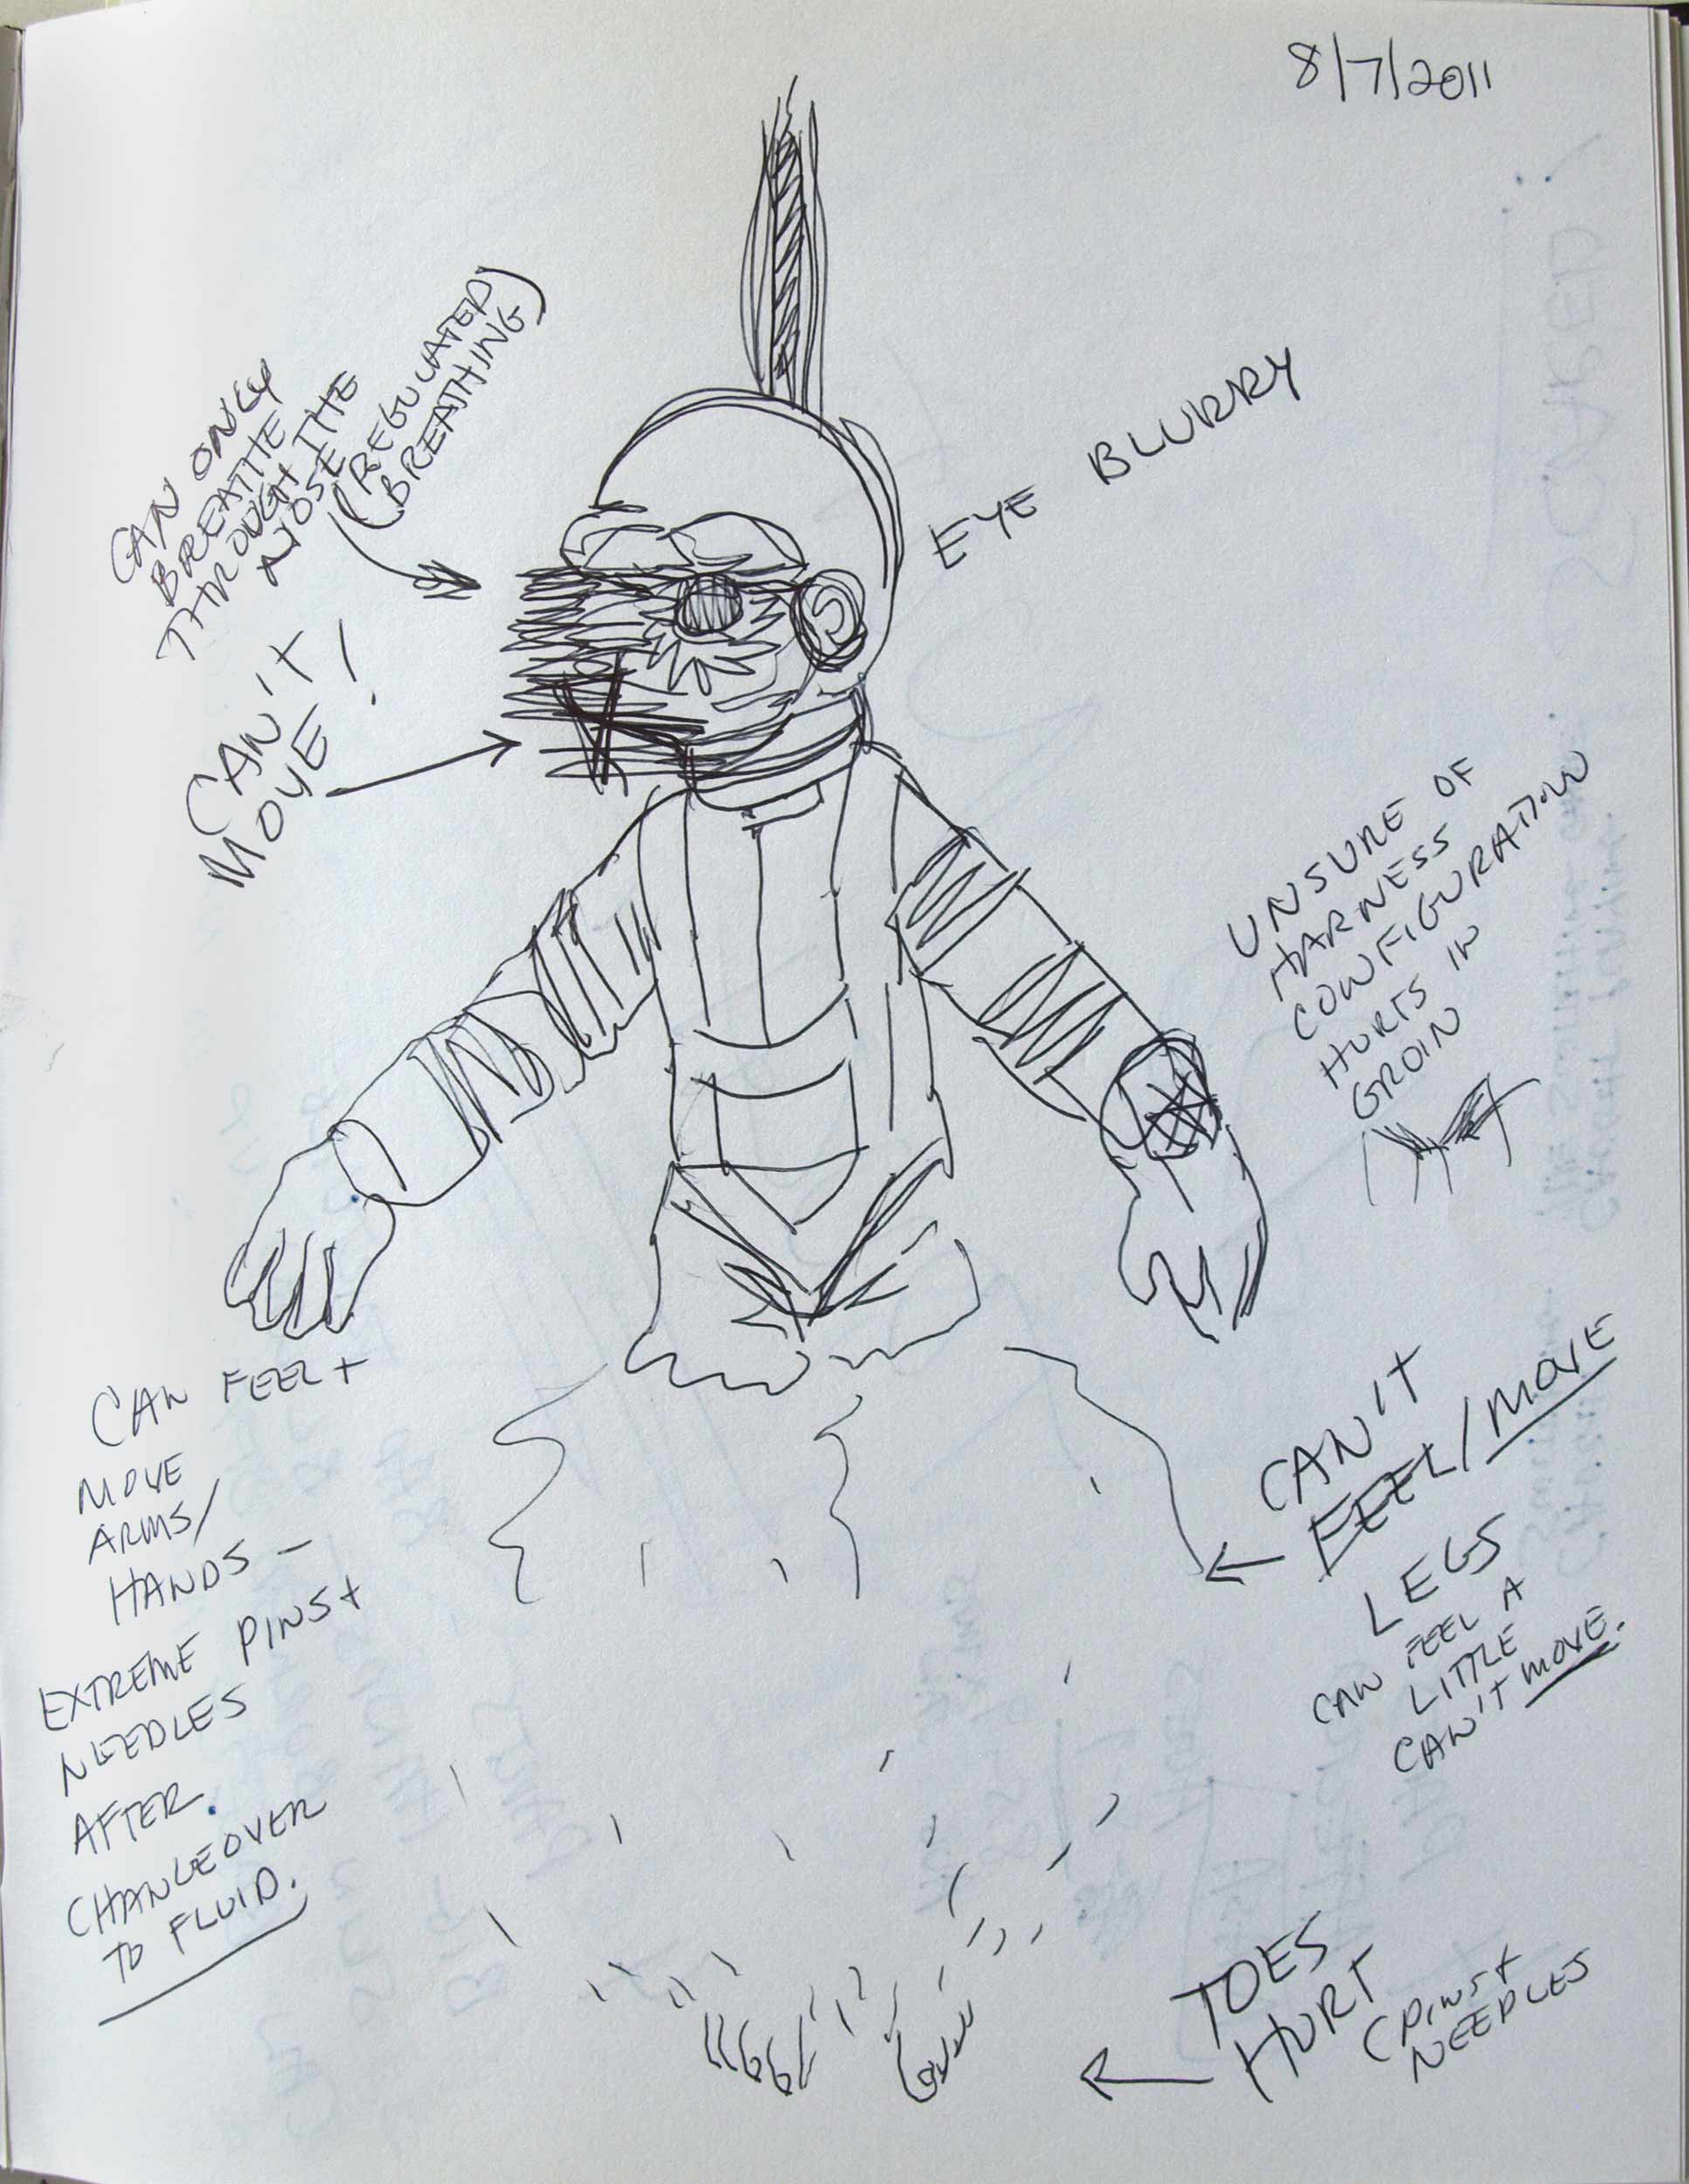 8/7/2011
CAN ONLY
BREATHE
THROUGH THE
NOSE
(REGULATED
BREATHING)
CAN'T
MOVE!
EYE BLURRY
UNSURE OF
HARNESS
CONFIGURATION
HURTS IN
GROIN
CAN FEEL +
MOVE
ARMS/
HANDS -
EXTREME PINS +
NEEDLES
AFTER
CHANGEOVER
TO FLUID.
CAN'T
FEEL/MOVE
LEGS
CAN FEEL A
LITTLE
CAN'T MOVE.
TOES
HURT
(PINS +
NEEDLES